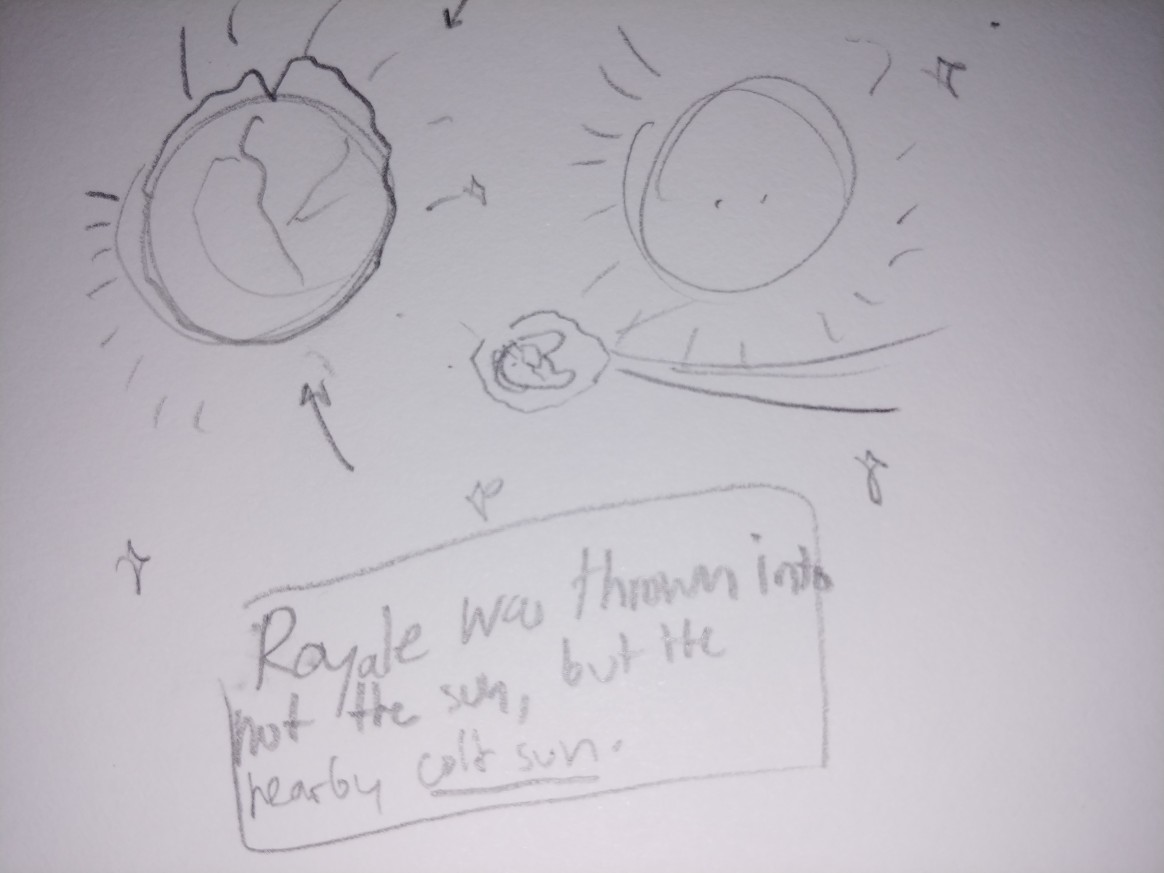 Royale was thrown into
not the sun, but the
nearby cold sun.